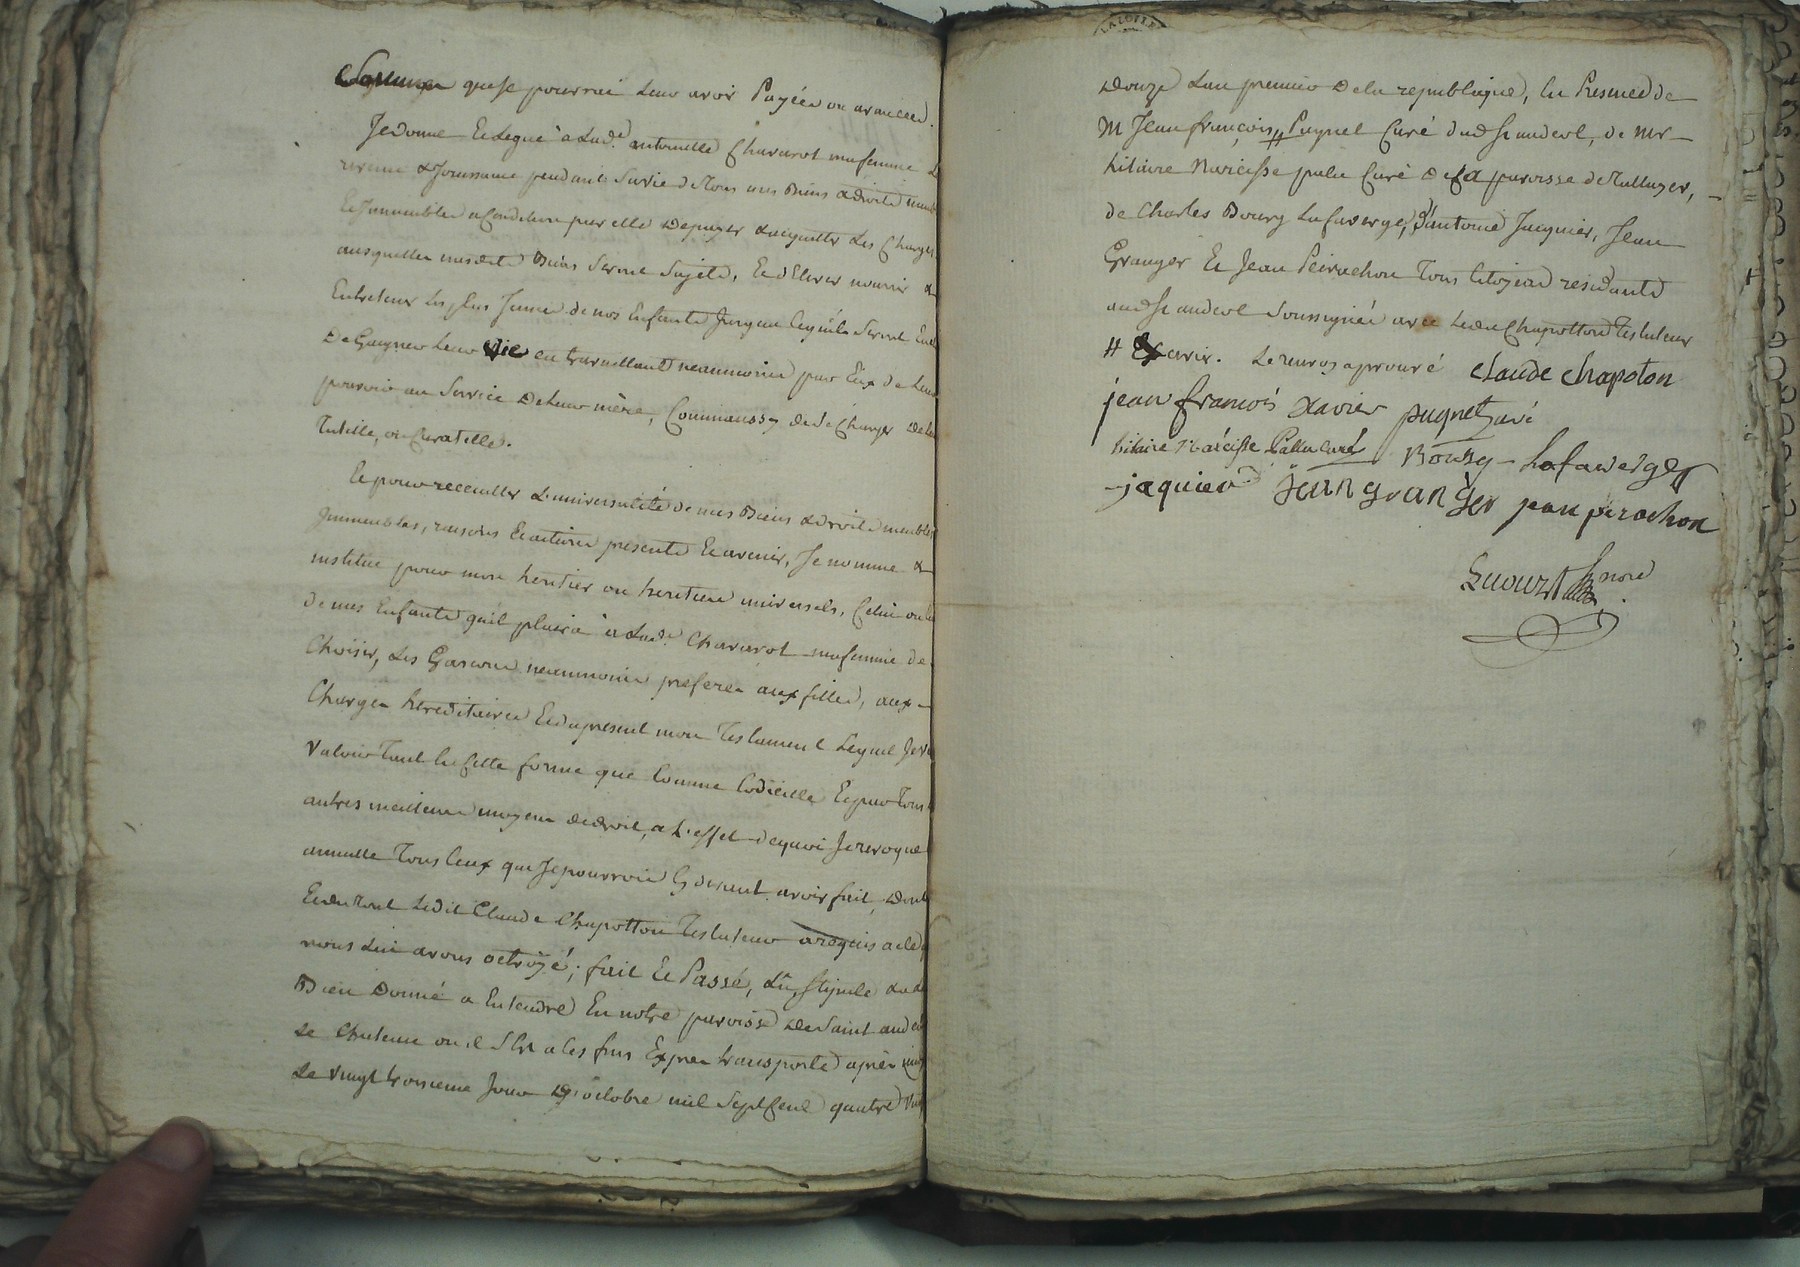 Sommes que je pourrai leur avoir Payées ou avancées.
Je donne Et Legue à Lad.e antoinette Chavarot ma femme
revenu & Jouissance pendant Sa vie de Tous mes Biens & droits meub
Et Immeubles a Condition par elle De payer & acquitter Les Charges
ausquelles mesdits Biens Seront Sujets, Et d'Elever nourrir &
Entretenir Les plus Jeunes de nos Enfants Jusques Ce qu'ils Seront En
De Gaigner Leur vie en travaillant neanmoins par Eux de Leur
pouvoir au Service De Leur mère, Comme aussy de Se Charger de
Tutelle, ou Curatelle.
Et pour recceuiller L'universalité de mes Biens & droits meubles
Immeubles, raisons Et actions presents Et avenir, Je nomme &
institue pour mon heritier ou heritiere universels, Celui ou
de mes Enfants qu'il plaira à Lad.e Chavarot ma femme de
Choisir, Les Garcons neanmoins preferés aux filles, aux
Charges hereditaires Et du present mon Testament Lequel Je v
Valoir Tant En Cette forme que Comme Codicille Et par Tous
autres meilleurs moyens de droit, a L'effet de quoi Je revoque
annulle Tous Ceux que Je pourrois Cy devant avoir fait, Dont
Et du Tout Ledit Claude Chapotton Testateur a requis acte
nous Lui avons octroÿé; fait Et Passé, Lu, Stipule
Bien Donné a Entendre En notre paroisse De Saint and
Le Chateau ou il S'est a Ces fins Exprès transporté après
Le Vingt troisieme Jour D'octobre mil Sept Cent quatre Vin
Douze L'an premier De la republique, En Presence de
M Jean françois # Puynet Curé dud St andeol, de Mr
hilaire Narcisse palu Curé De La paroisse de
de Charles Bourg Lafaverge, d'antoine Jacquier, Jean
Granger Et Jean Peirachon Tous Citoyens residants
aud St andeol Soussignés avec Ledit Chapotton Testateur
# Exavir. Le renvoy aprouvé Claude Chapoton
jean francois Xavier puynet Curé
hilaire Narcisse Pallu Curé Bourg Lafaverge
jaquier Jean granger jean pirachon
nore